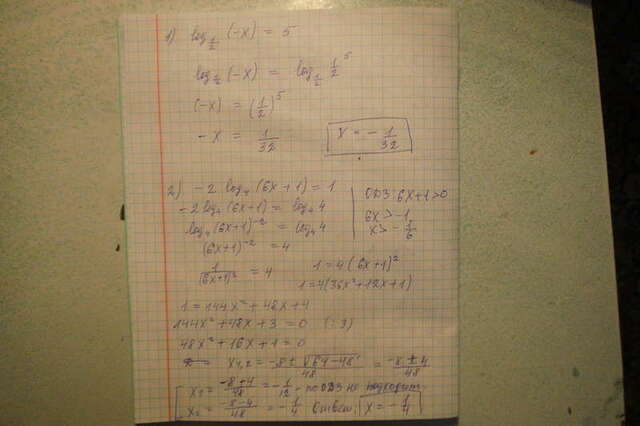 1) log_{1/2} (-x) = 5
log_{1/2} (-x) = log_{1/2} 1/2^5
(-x) = (1/2)^5
-x = 1/32
x = - 1/32
2) -2 log_4 (6x+1) = 1
-2 log_4 (6x+1) = log_4 4
log_4 (6x+1)^{-2} = log_4 4
(6x+1)^{-2} = 4
ОДЗ: 6x+1>0
6x > -1
x > - 1/6
1/(6x+1)^2 = 4
1 = 4(6x+1)^2
1 = 4(36x^2+12x+1)
1 = 144x^2 + 48x + 4
144x^2 + 48x + 3 = 0 (:3)
48x^2 + 16x + 1 = 0
x_{1,2} = -8 ± √64-48 / 48 = -8 ± 4 / 48
x_1 = -8+4 / 48 = - 1/12, по ОДЗ не подходит
x_2 = -8-4 / 48 = - 1/4 Ответ: x = - 1/4